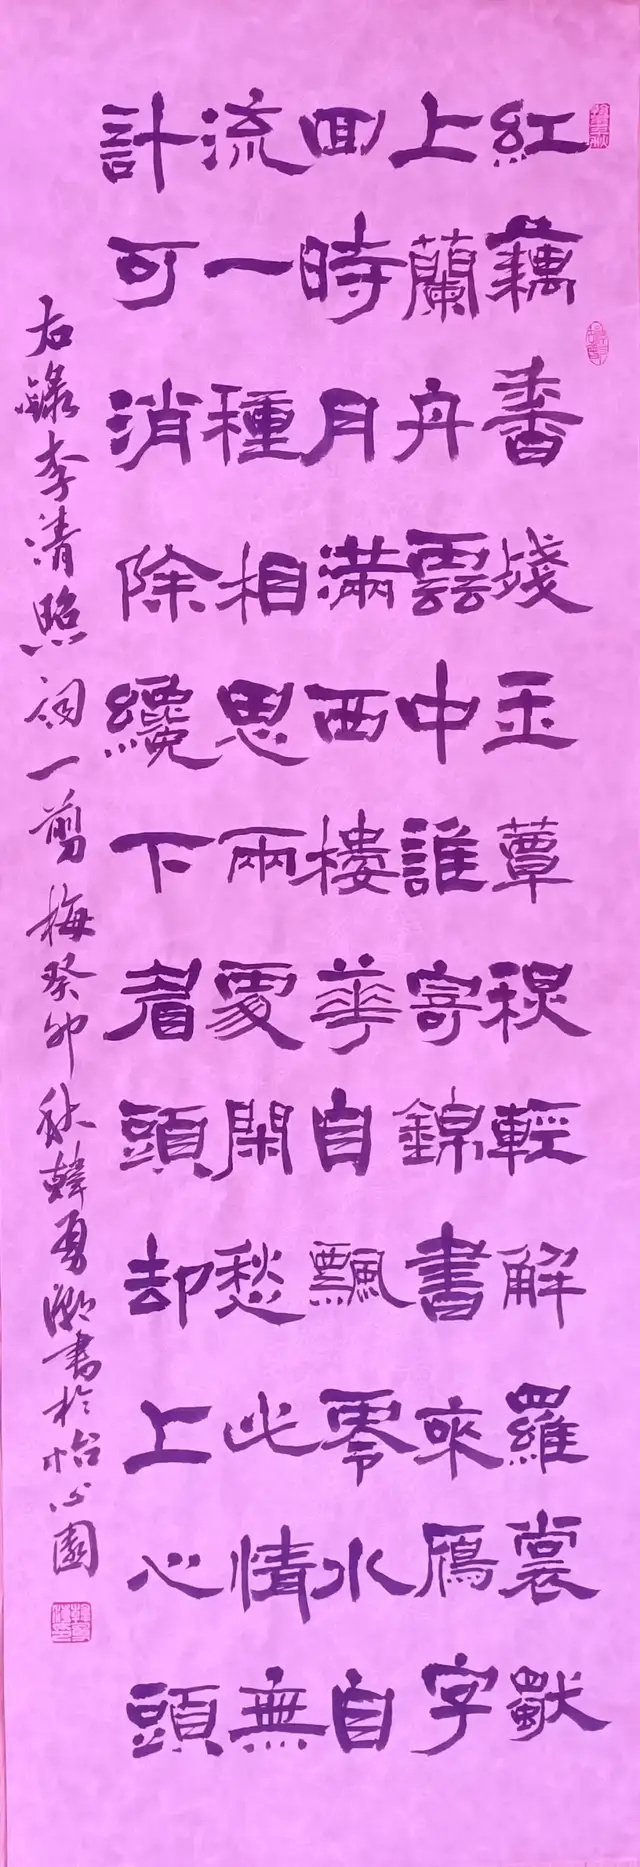 紅藕香殘玉蕈秋輕解羅裳獨
上蘭舟雲中誰寄錦書來鴈字
回時月滿西樓華自飄零水自
流一種相思兩處閑愁此情無
計可消除纔下眉頭却上心頭
右錄李清照詞一剪梅癸卯秋韓勇書於怡心園